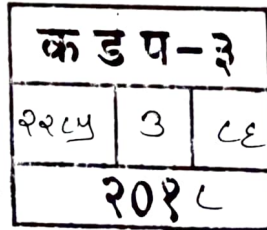 क ड प-३
२२८५ ३ ८६
२०१८